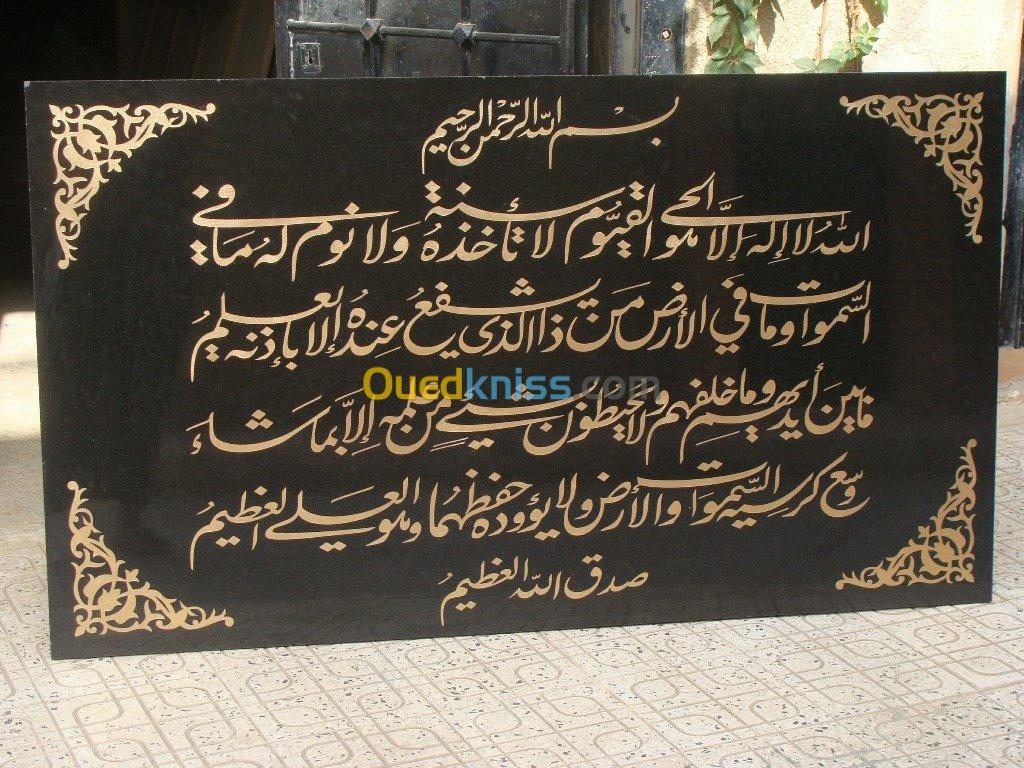 بسم الله الرّحمن الرّحيم
اللهُ لا إله إلاَّ هو الحي القيّوم لا تأخذهُ سِنة ولا نوم لهُ ما في
السّموات وما في الأرض من ذا الذي يشفعُ عِندهُ إلا بإذنه يعلمُ
ما بين أيديهم وما خلفهم ولا يحيطون بشيءٍ من علمه إلاَّ بما شاءَ
وسع كرسيه السّموات والأرض ولا يؤوده حفظهُما وهو العلي العظيمُ
صدق الله العظيمُ
Ouedkniss.com